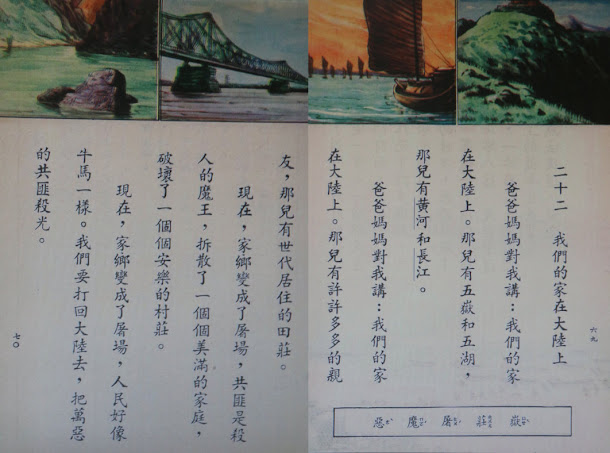 六九
二十二　我們的家在大陸上
爸爸媽媽對我講：我們的家
在大陸上。那兒有五嶽和五湖，
那兒有黃河和長江。
爸爸媽媽對我講：我們的家
在大陸上。那兒有許許多多的親
嶽　莊　屠　魔　惡
友，那兒有世代居住的田莊。
現在，家鄉變成了屠場，共匪是殺
人的魔王，拆散了一個個美滿的家庭，
破壞了一個個安樂的村莊。
現在，家鄉變成了屠場，人民好像
牛馬一樣。我們要打回大陸去，把萬惡
的共匪殺光。
七〇